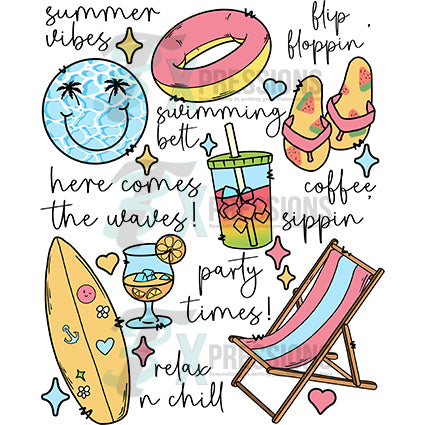 summer
vibes
flip
floppin'
swimming
belt
here comes
the waves!
coffee,
sippin
party
times!
relax
n chill
XPRESSIONS
XPRESSIONS
XPRESSIONS